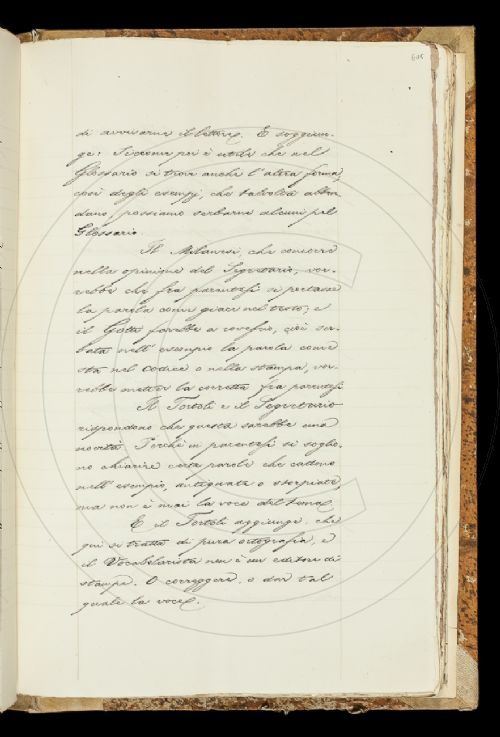 605
di avvisarne il lettore. E soggiun-
ge: Siccome poi è utile che nel
Glossario si trovi anche l'altra forma,
così degli esempj, che talvolta abbon-
dano, possiamo serbarne alcuni pel
Glossario.
Il Milanesi, che concorre
nella opinione del Segretario, vor-
rebbe che fra parentesi si portasse
la parola come giace nel testo; e
il Gotti farebbe a rovescio, cioè ser-
bata nell'esempio la parola come
sta nel Codice o nella stampa, vor-
rebbe mettere la corretta fra parentesi.
Il Tortoli e il Segretario
rispondono che questa sarebbe una
novità. Perchè in parentesi si soglio-
no chiarire certe parole che cattono
nell'esempio, antiquate o storpiate,
ma non è mai la voce del tema.
E il Tortoli aggiunge, che
qui si tratta di pura ortografia, e
il Vocabolarista non è un editore di
stampe. O correggere, o dar tal
quale la voce.